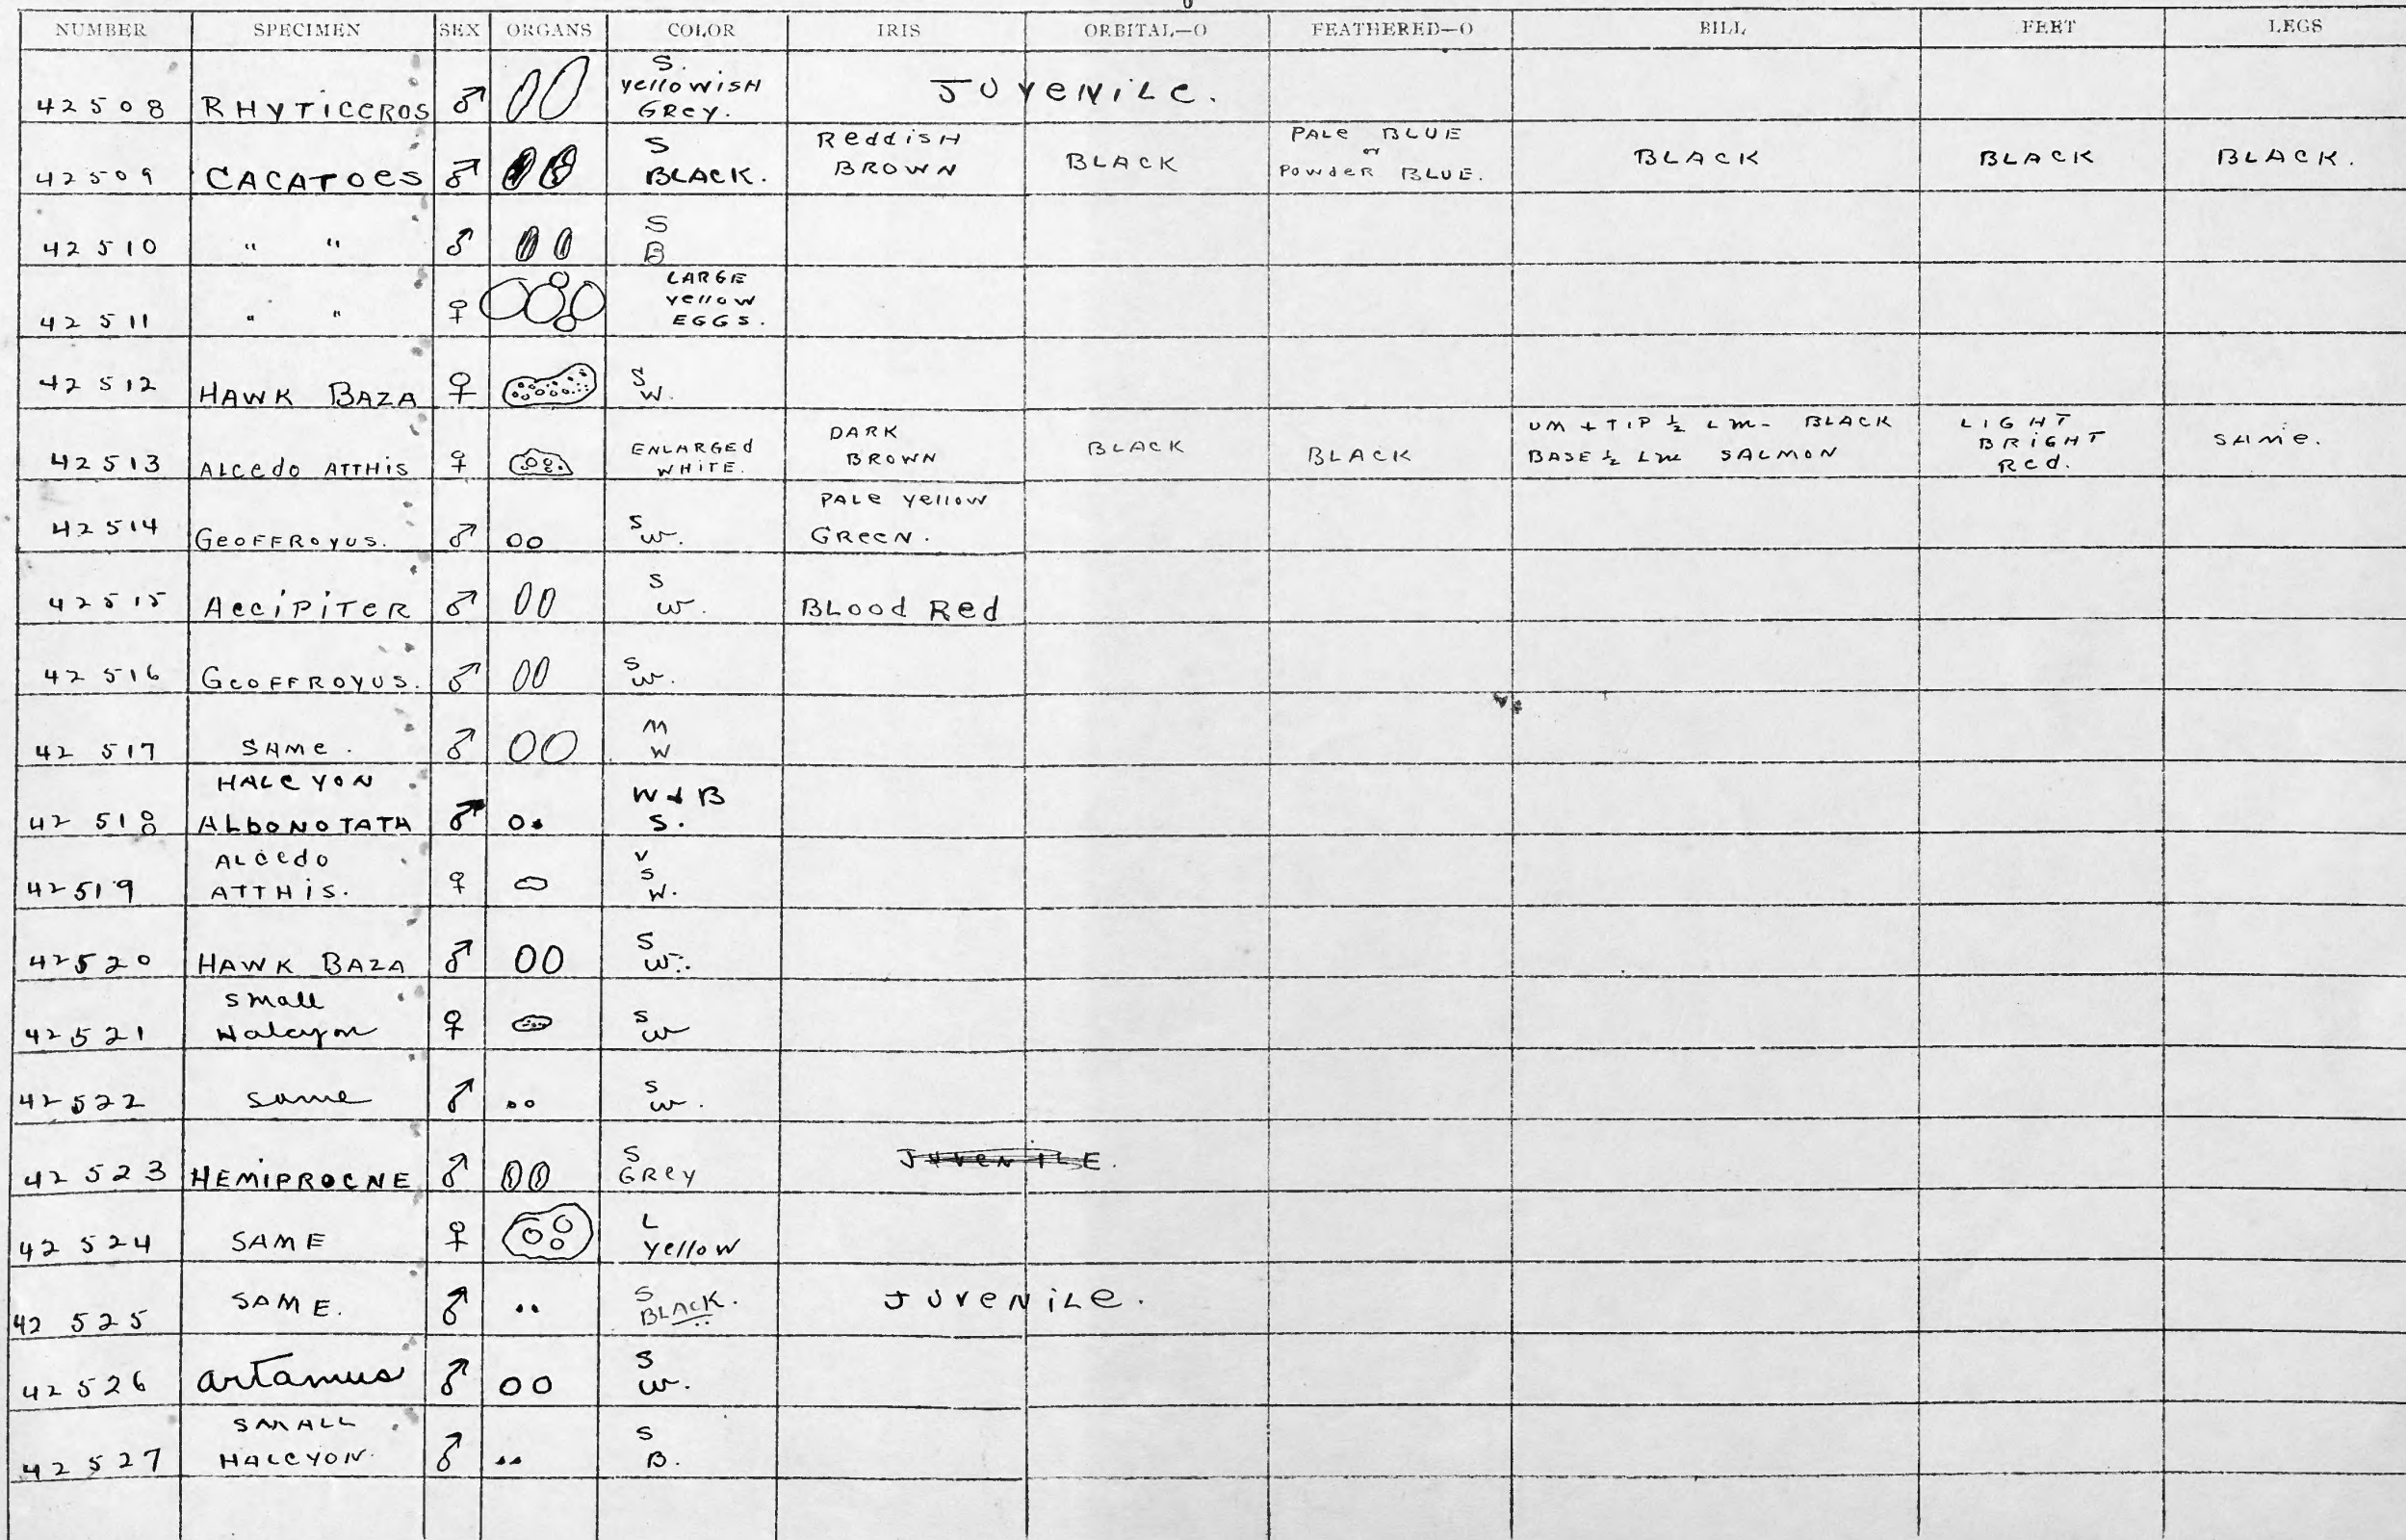 NUMBER SPECIMEN SEX ORGANS COLOR IRIS ORBITAL—O FEATHERED—O BILL FEET LEGS
S.
yellowisH
GREY.
42508 RHYTICEROS ♂ JUVENILE.
42509 CACATOES ♂ S
BLACK.
ReddisH
BROWN
BLACK
PALe BLUE
or
Powder BLUE.
BLACK BLACK BLACK.
42510 " " ♂ S
B
42511 " " ♀ LARGE
yellow
EGGS.
42512 HAWK BAZA ♀ S
W.
42513 ALcedo ATTHIS ♀ ENLARGEd
WHITE.
DARK
BROWN
BLACK BLACK
UM + TIP ½ LM - BLACK
BASE ½ LM SALMON
LIGHT
BRIGHT
Red.
SAMe.
42514 GeoFFROYUS. ♂ S
W.
PALe yellow
GREEN.
42515 ACCIPITER ♂ S
W.
BLood Red
42516 GeoFFROYUS. ♂ S
W.
42517 SAMe. ♂ M
W
42518 HALCYON
ALBONOTATA ♂ W & B
S.
42519 ALcedo
ATTHIS. ♀ V
S
W.
42520 HAWK BAZA ♂ S
W.
42521 small
Halcyon ♀ S
W
42522 same ♂ S
W.
42523 HEMIPROCNE ♂ S
GREY
JUVENILE.
42524 SAME ♀ L
yellow
42525 SAME. ♂ S
BLACK.
JUVENILE.
42526 artamus ♂ S
W.
42527 SMALL
HALCYON. ♂ S
B.